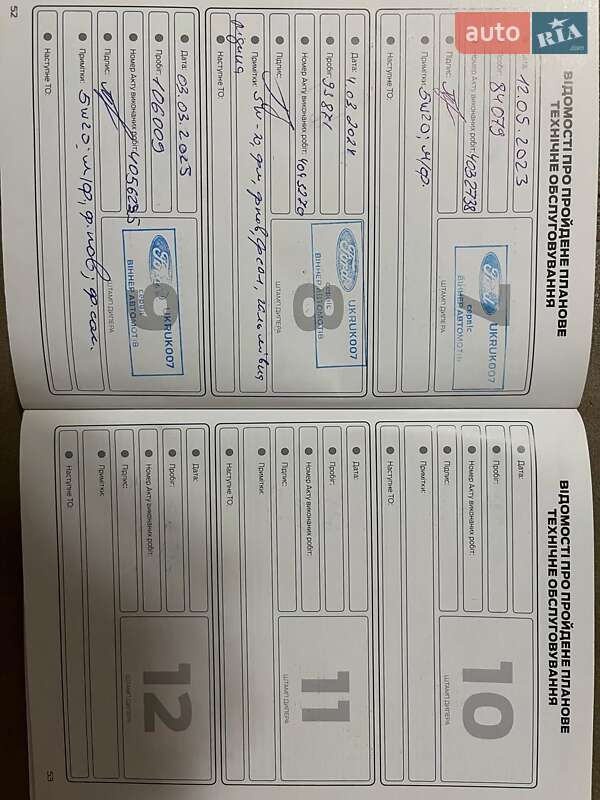 auto RIA.com
52
ВІДОМОСТІ ПРО ПРОЙДЕНЕ ПЛАНОВЕ
ТЕХНІЧНЕ ОБСЛУГОВУВАННЯ
Дата: 12.05.2023
Пробіг: 84079
Номер Акту виконаних робіт: 4032738
Підпис:
Примітки: 5w20; м/ф.
Наступне ТО:
7
ШТАМП ДИЛЕРА
Ford
UKRUK007
сервіс
ВІННЕР АВТОМОТІВ
Дата: 4.03 2024
Пробіг: 93871
Номер Акту виконаних робіт: 4045270
Підпис:
Примітки: 5w-20, ф.пов, ф.сал, гальмівна
рідина
Наступне ТО:
8
ШТАМП ДИЛЕРА
Ford
UKRUK007
сервіс
ВІННЕР АВТОМОТІВ
Дата: 03.03.2025
Пробіг: 106009
Номер Акту виконаних робіт: 4056295
Підпис:
Примітки: 5w20; м/ф; ф.пов; ф.сал.
Наступне ТО:
9
ШТАМП ДИЛЕРА
Ford
UKRUK007
сервіс
ВІННЕР АВТОМОТІВ
ВІДОМОСТІ ПРО ПРОЙДЕНЕ ПЛАНОВЕ
ТЕХНІЧНЕ ОБСЛУГОВУВАННЯ
Дата:
Пробіг:
Номер Акту виконаних робіт:
Підпис:
Примітки:
Наступне ТО:
10
ШТАМП ДИЛЕРА
Дата:
Пробіг:
Номер Акту виконаних робіт:
Підпис:
Примітки:
Наступне ТО:
11
ШТАМП ДИЛЕРА
Дата:
Пробіг:
Номер Акту виконаних робіт:
Підпис:
Примітки:
Наступне ТО:
12
ШТАМП ДИЛЕРА
53